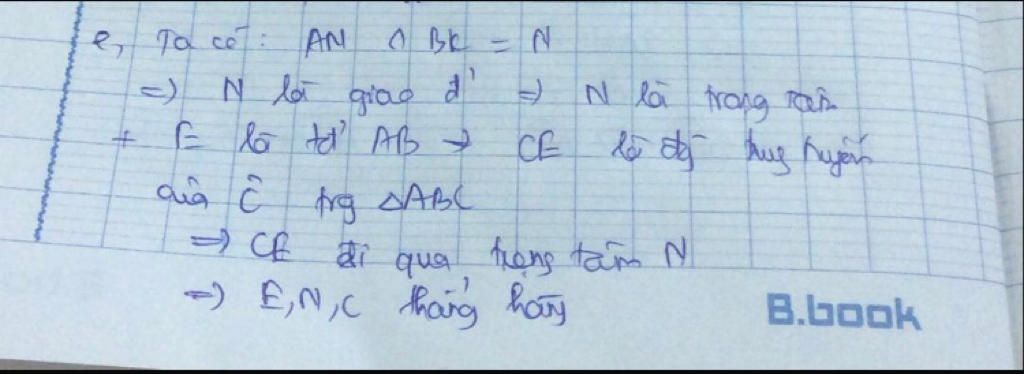 e, Ta có: AN ∩ BK = N
=> N là giao đ' => N là trọng tâm
+ E là tđ' AB -> CE là đg trug tuyến
của Ĉ trg △ABC
=> CE đi qua trọng tâm N
=> E,N,C thẳng hàng
B.book